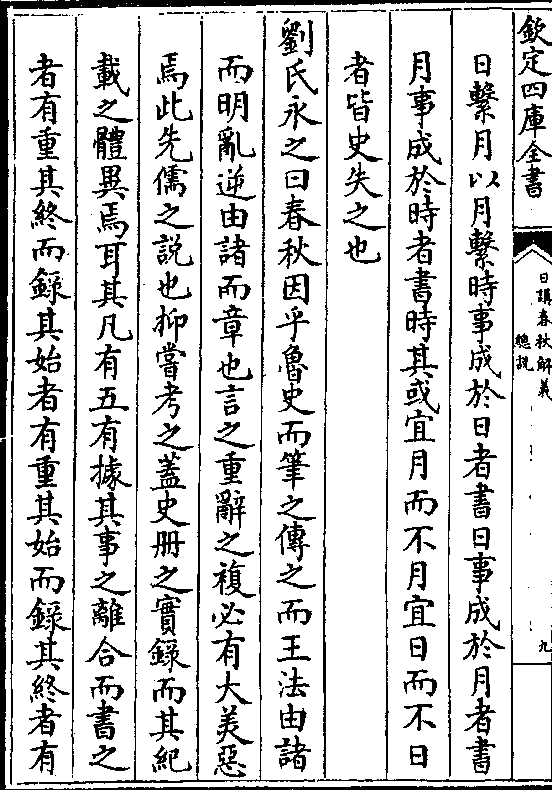 欽定四庫全書
日講春秋解義
總說
九
日繫月以月繫時事成於日者書日事成於月者書
月事成於時者書時其或宜月而不月宜日而不日
者皆史失之也
劉氏永之曰春秋因乎魯史而筆之傳之而王法由諸
而明亂逆由諸而章也言之重辭之複必有大美惡
焉此先儒之説也抑嘗考之蓋史册之實錄而其紀
載之體異焉耳其凡有五有據其事之離合而書之
者有重其終而錄其始者有重其始而錄其終者有